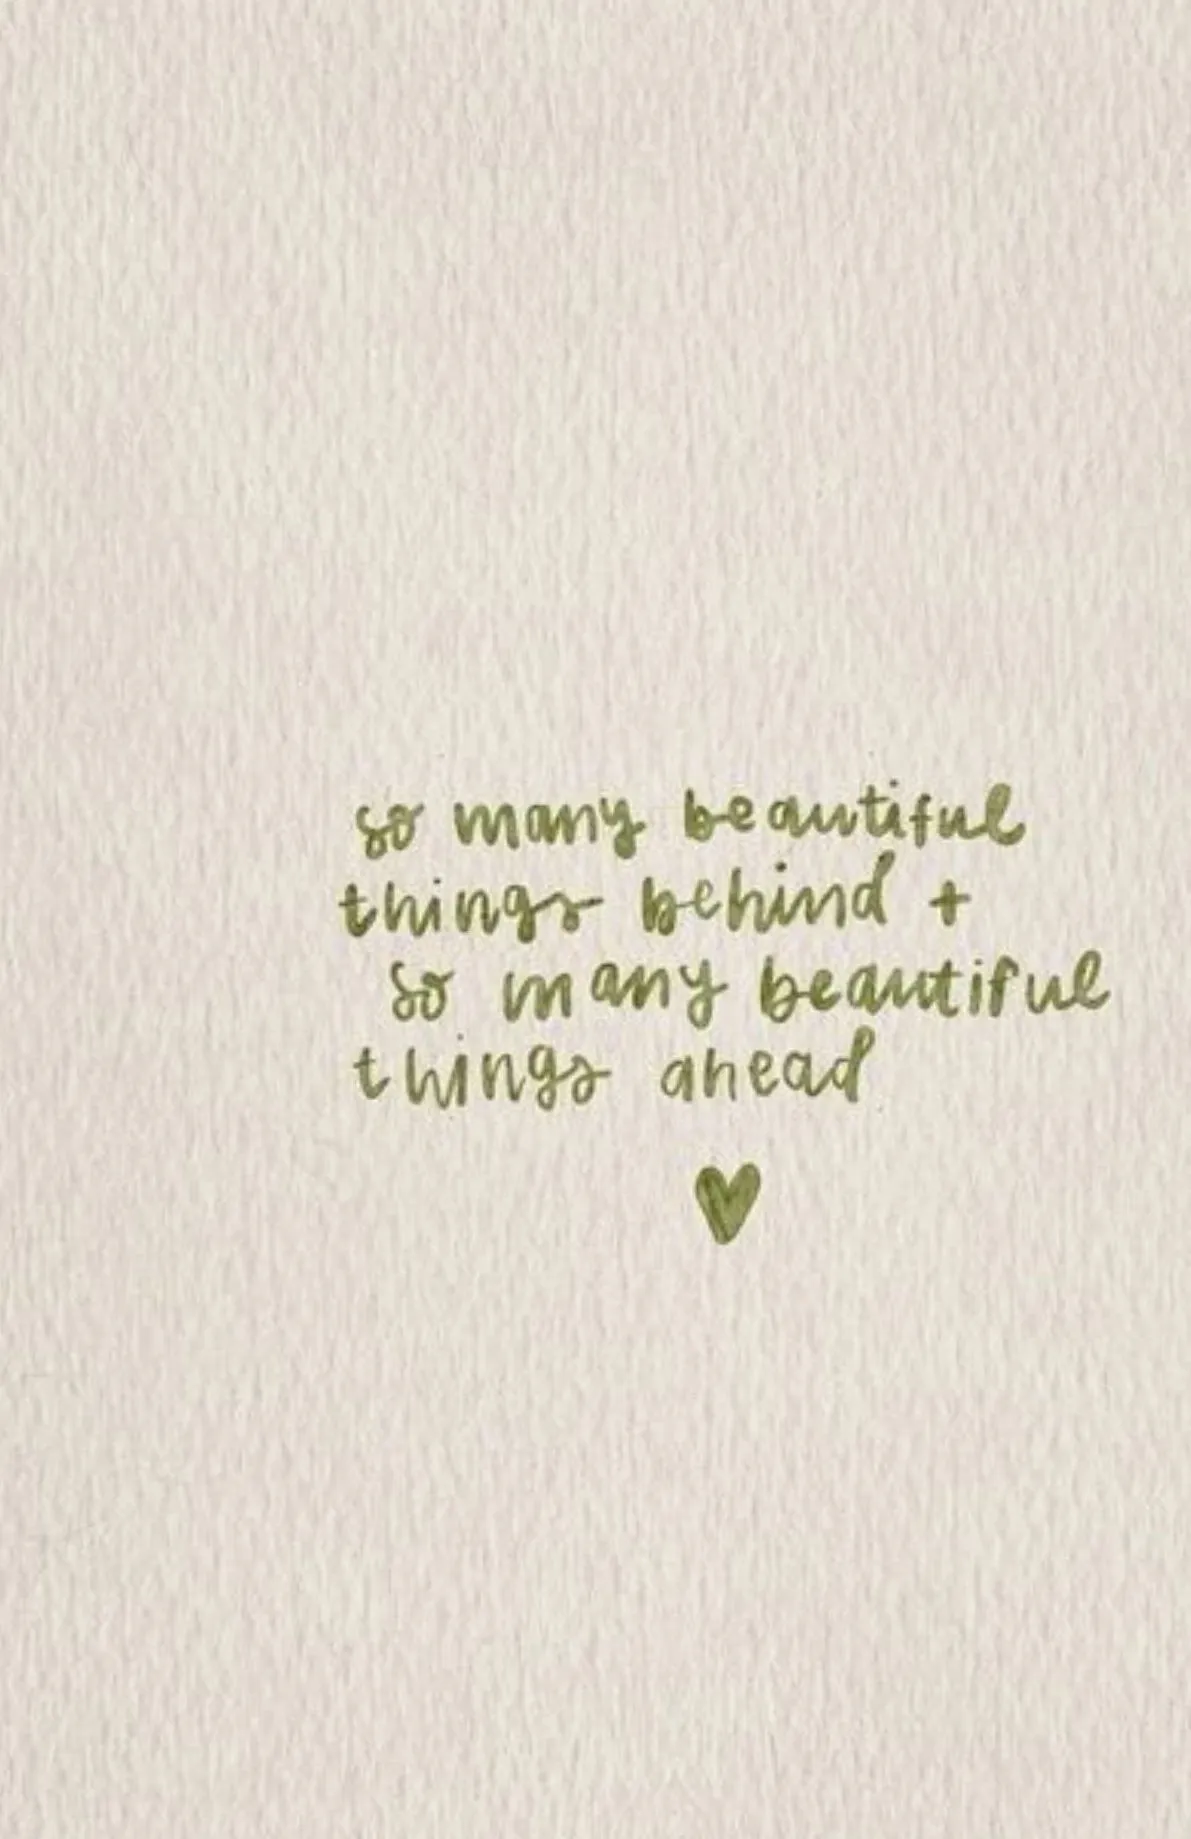 so many beautiful
things behind +
so many beautiful
things ahead